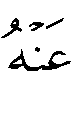 عَنْهُ